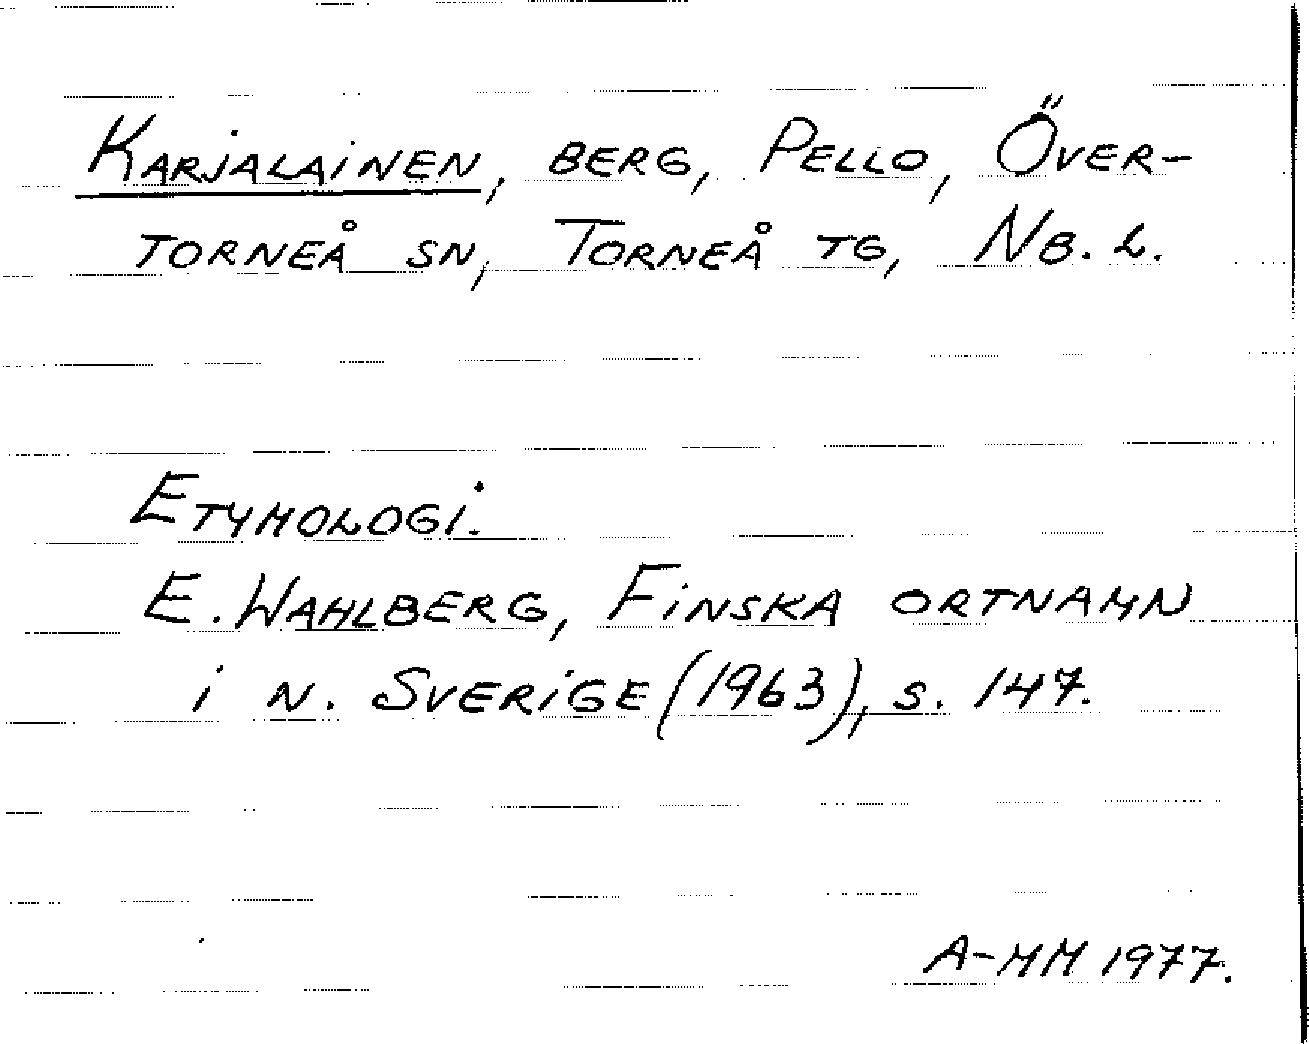 Karjalainen, berg, Pello, Över-
torneå sn, Torneå tg, Nb. l.
Etymologi.
E. Wahlberg, Finska ortnamn
i n. Sverige (1963), s. 147.
A-MM 1977.